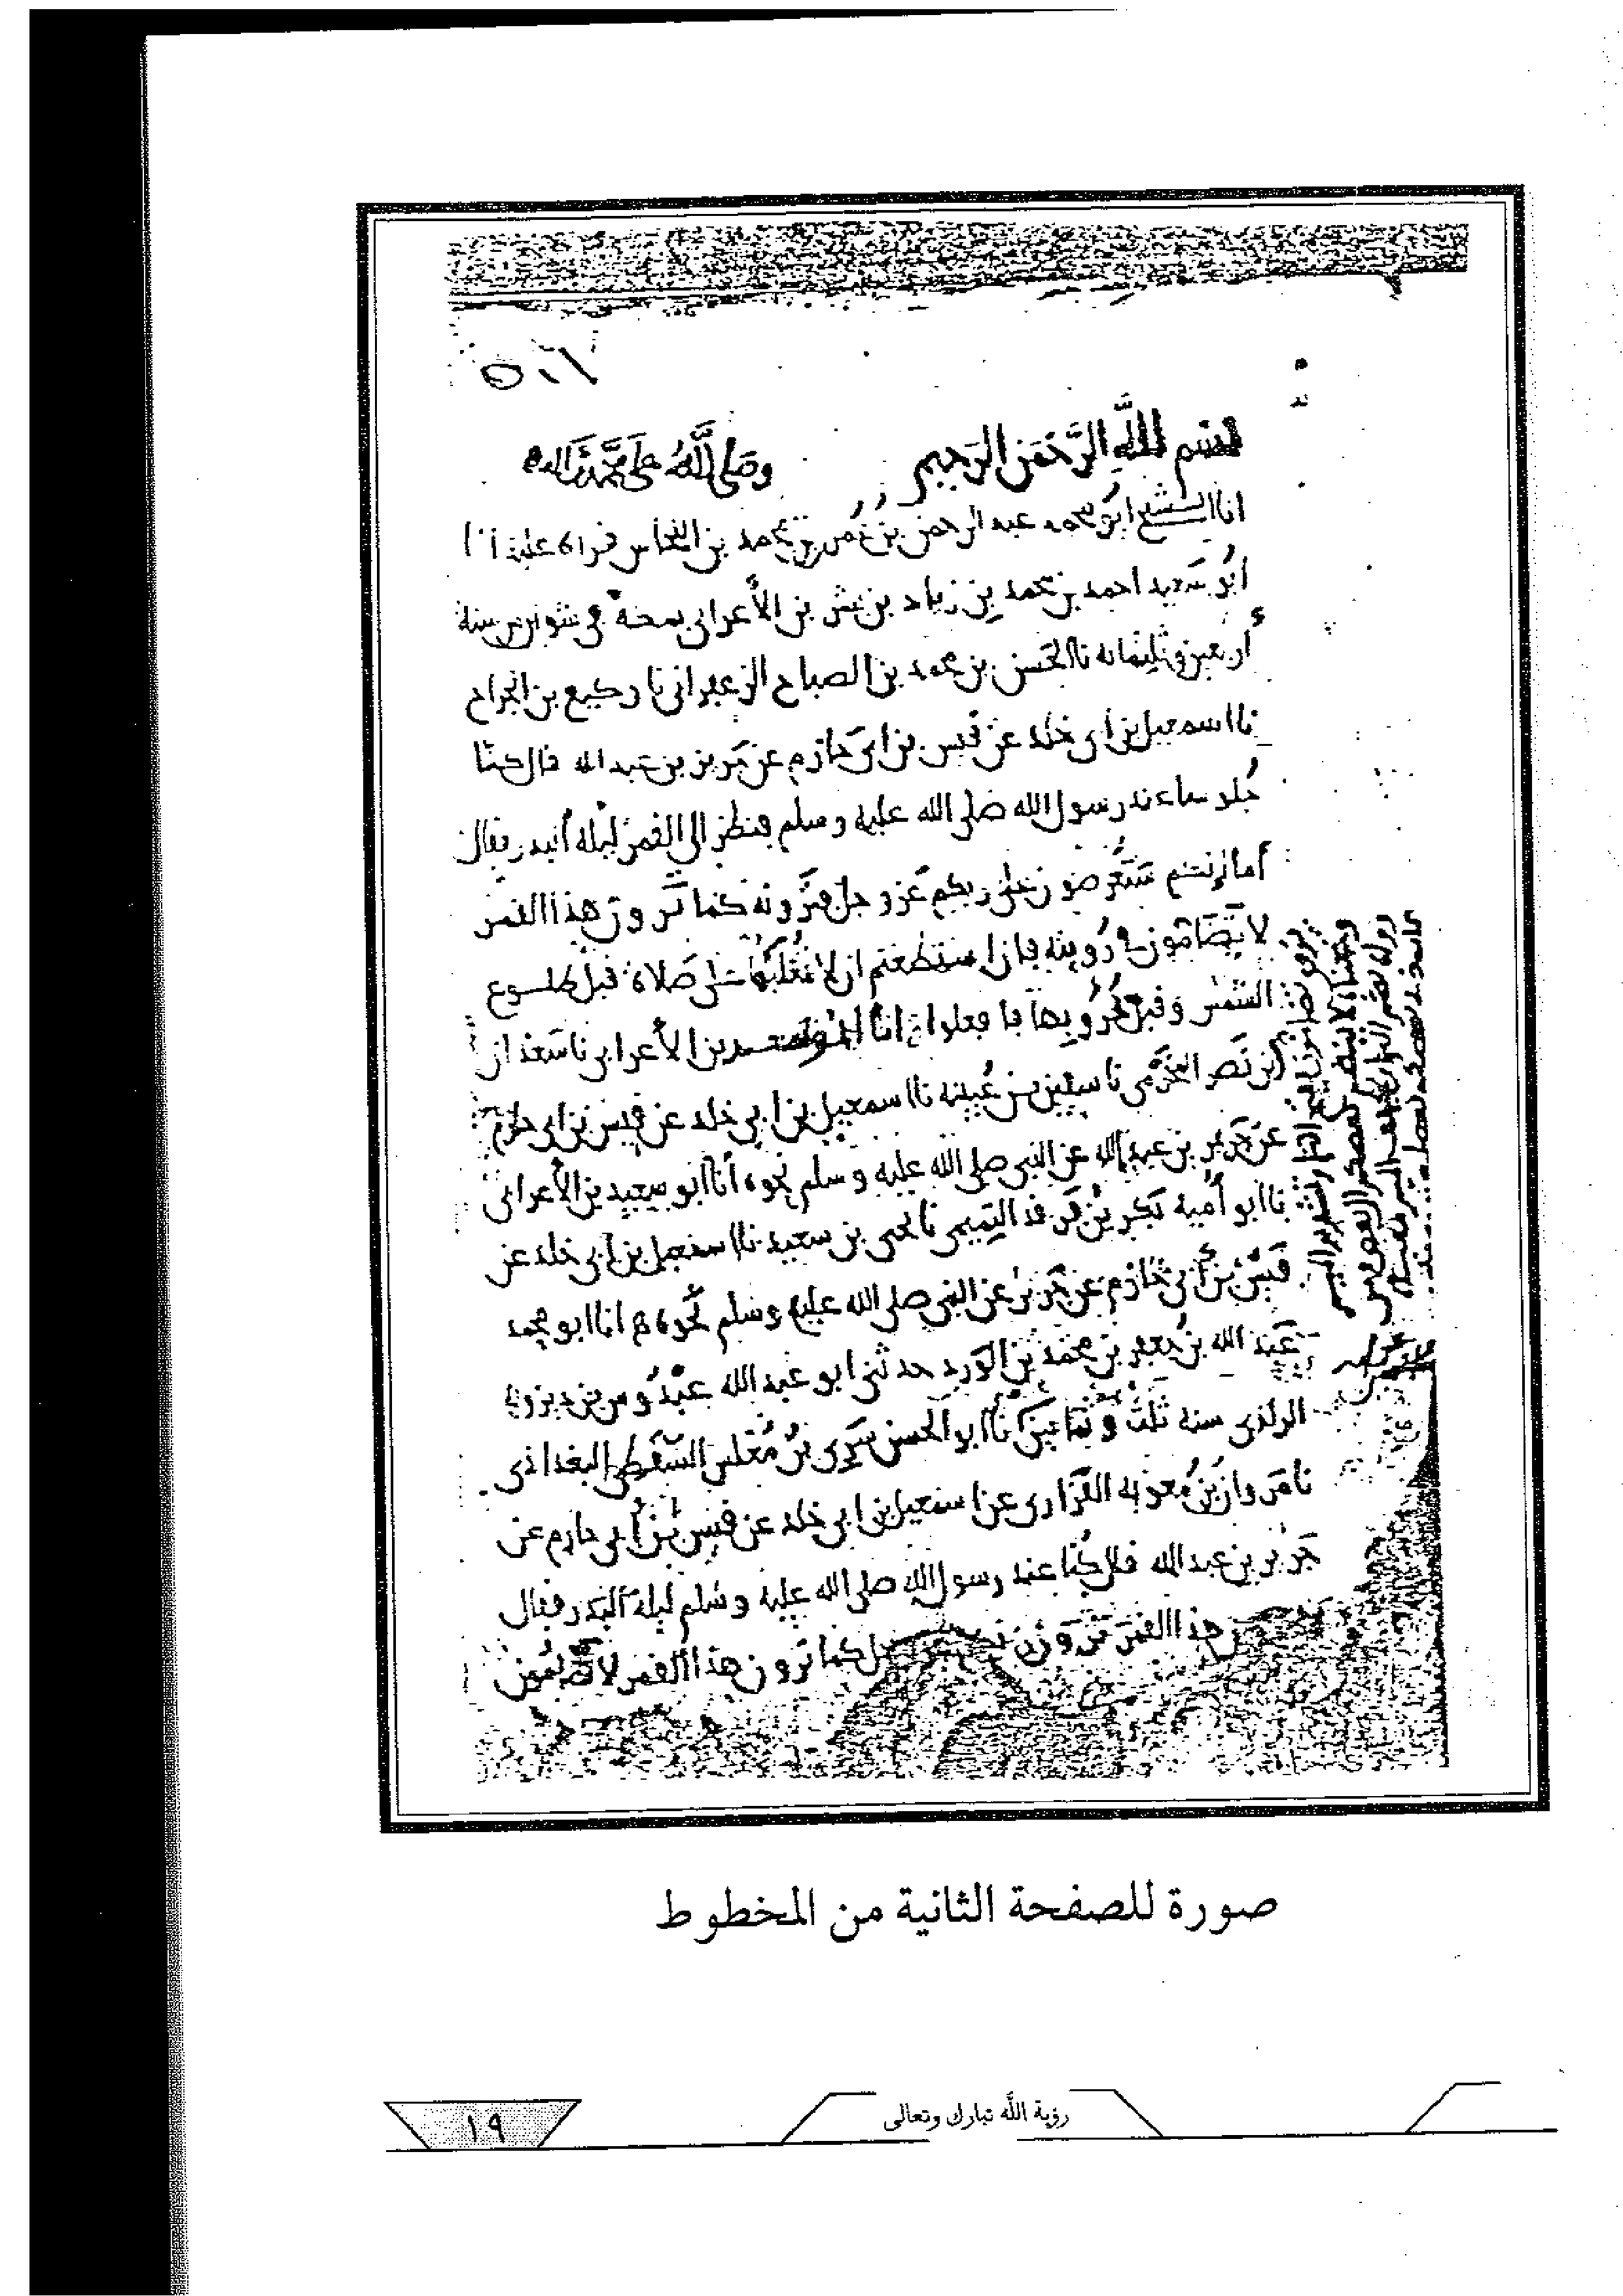 بسم الله الرحمن الرحيم وصلى الله على محمد واله
انا الشيخ ابو محمد عبد الرحمن بن عمر بن محمد بن النحاس قراة عليه
أبو سعيد احمد بن محمد بن زياد بن بشر بن الأعرابي بمكة في سنة
أربعين وثلثمائه نا الحسن بن محمد بن الصباح الزعفراني نا وكيع بن الجراح
نا اسمعيل بن ابي خلد عن قيس بن ابي حازم عن جرير بن عبد الله قال كنا
جلوسا عند رسول الله صلى الله عليه وسلم فنظر الى القمر ليلة البدر فقال
أما إنكم ستعرضون على ربكم عز و جل فترونه كما ترون هذا القمر
لا تضامون في رؤيته فان استطعتم ان لا تغلبوا على صلاة قبل طلوع
الشمس وقبل غروبها فافعلوا انا بن الأعرابي نا سعدان
بن نصر المخرمي نا سفين بن عيينه نا اسمعيل بن ابي خلد عن قيس بن ابي حازم
عن جرير بن عبد الله عن النبي صلى الله عليه وسلم نحوه أنا أبو سعيد بن الأعرابي
نا ابو أمية بكر بن فرقد التميمي نا يحيى بن سعيد نا اسمعيل بن ابي خلد عن
قيس بن أبي حازم عن جرير عن النبي صلى الله عليه وسلم نحوه انا ابو محمد
عبد الله بن جعفر بن محمد بن الورد حدثني ابو عبد الله عبدوس بن ديزويه
الرازي سنة ثلث وثمانين نا أبو الحسن سري بن مغلس السقطي البغدادي
نا مروان بن معويه الفزاري عن اسمعيل بن ابي خلد عن قيس بن أبي حازم عن
جرير بن عبد الله قال كنا عند رسول الله صلى الله عليه وسلم ليلة البدر فقال
هذا القمر ترون كما ترون هذا القمر لا تضامون
صورة للصفحة الثانية من المخطوط
رؤية الله تبارك وتعالى
١٩